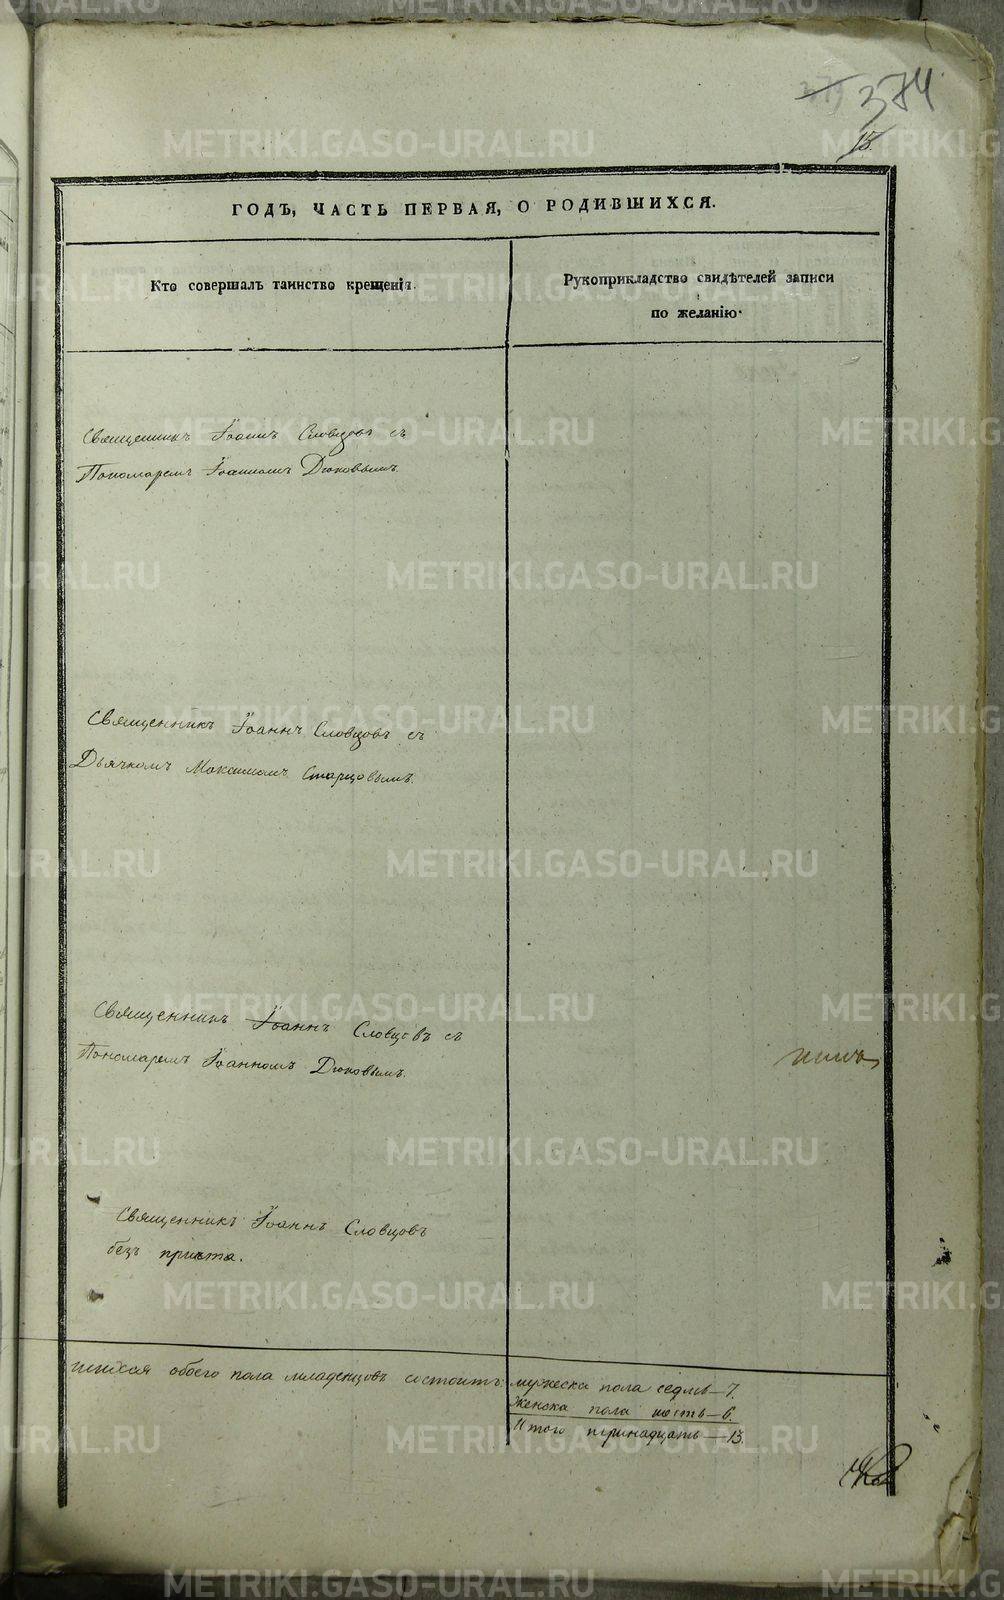 374
15.
ГОДЪ, ЧАСТЬ ПЕРВАЯ, О РОДИВШИХСЯ.
Кто совершалъ таинство крещенія.
Рукоприкладство свидѣтелей записи
по желанію.
Священникъ Іоаннъ Словцовъ съ
Пономаремъ Іоанномъ Дюковымъ.
Священникъ Іоаннъ Словцовъ съ
Дьячкомъ Максимомъ Старцовымъ.
Священникъ Іоаннъ Словцовъ съ
Пономаремъ Іоанномъ Дюковымъ.
Священникъ Іоаннъ Словцовъ
безъ причта.
обоего пола младенцовъ состоитъ: мужеска пола седмь—7.
Женска пола шесть—6.
Итого тринадцать—13.
METRIKI.GASO-URAL.RU